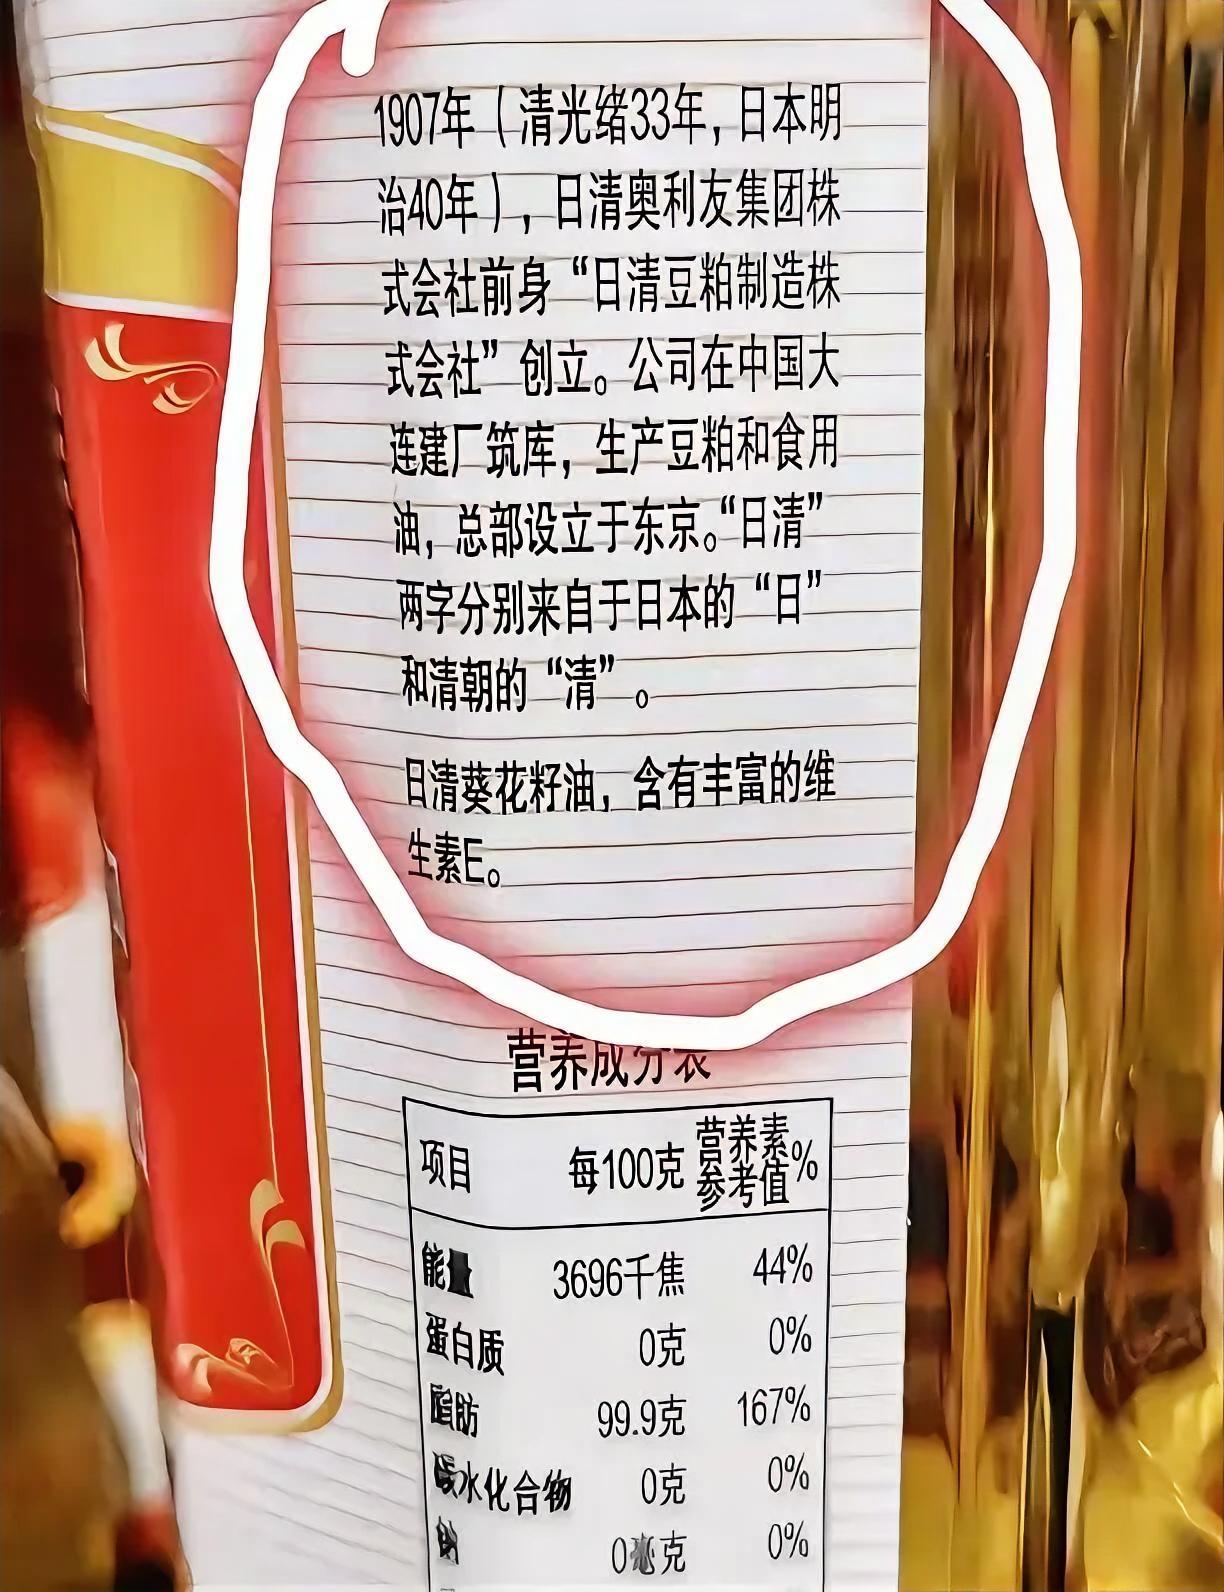 1907年（清光绪33年，日本明
治40年），日清奥利友集团株
式会社前身“日清豆粕制造株
式会社”创立。公司在中国大
连建厂筑库，生产豆粕和食用
油，总部设立于东京。“日清”
两字分别来自于日本的“日”
和清朝的“清”。
日清葵花籽油，含有丰富的维
生素E。
营养成分表
项目 每100克 营养素参考值%
能量 3696千焦 44%
蛋白质 0克 0%
脂肪 99.9克 167%
碳水化合物 0克 0%
钠 0毫克 0%